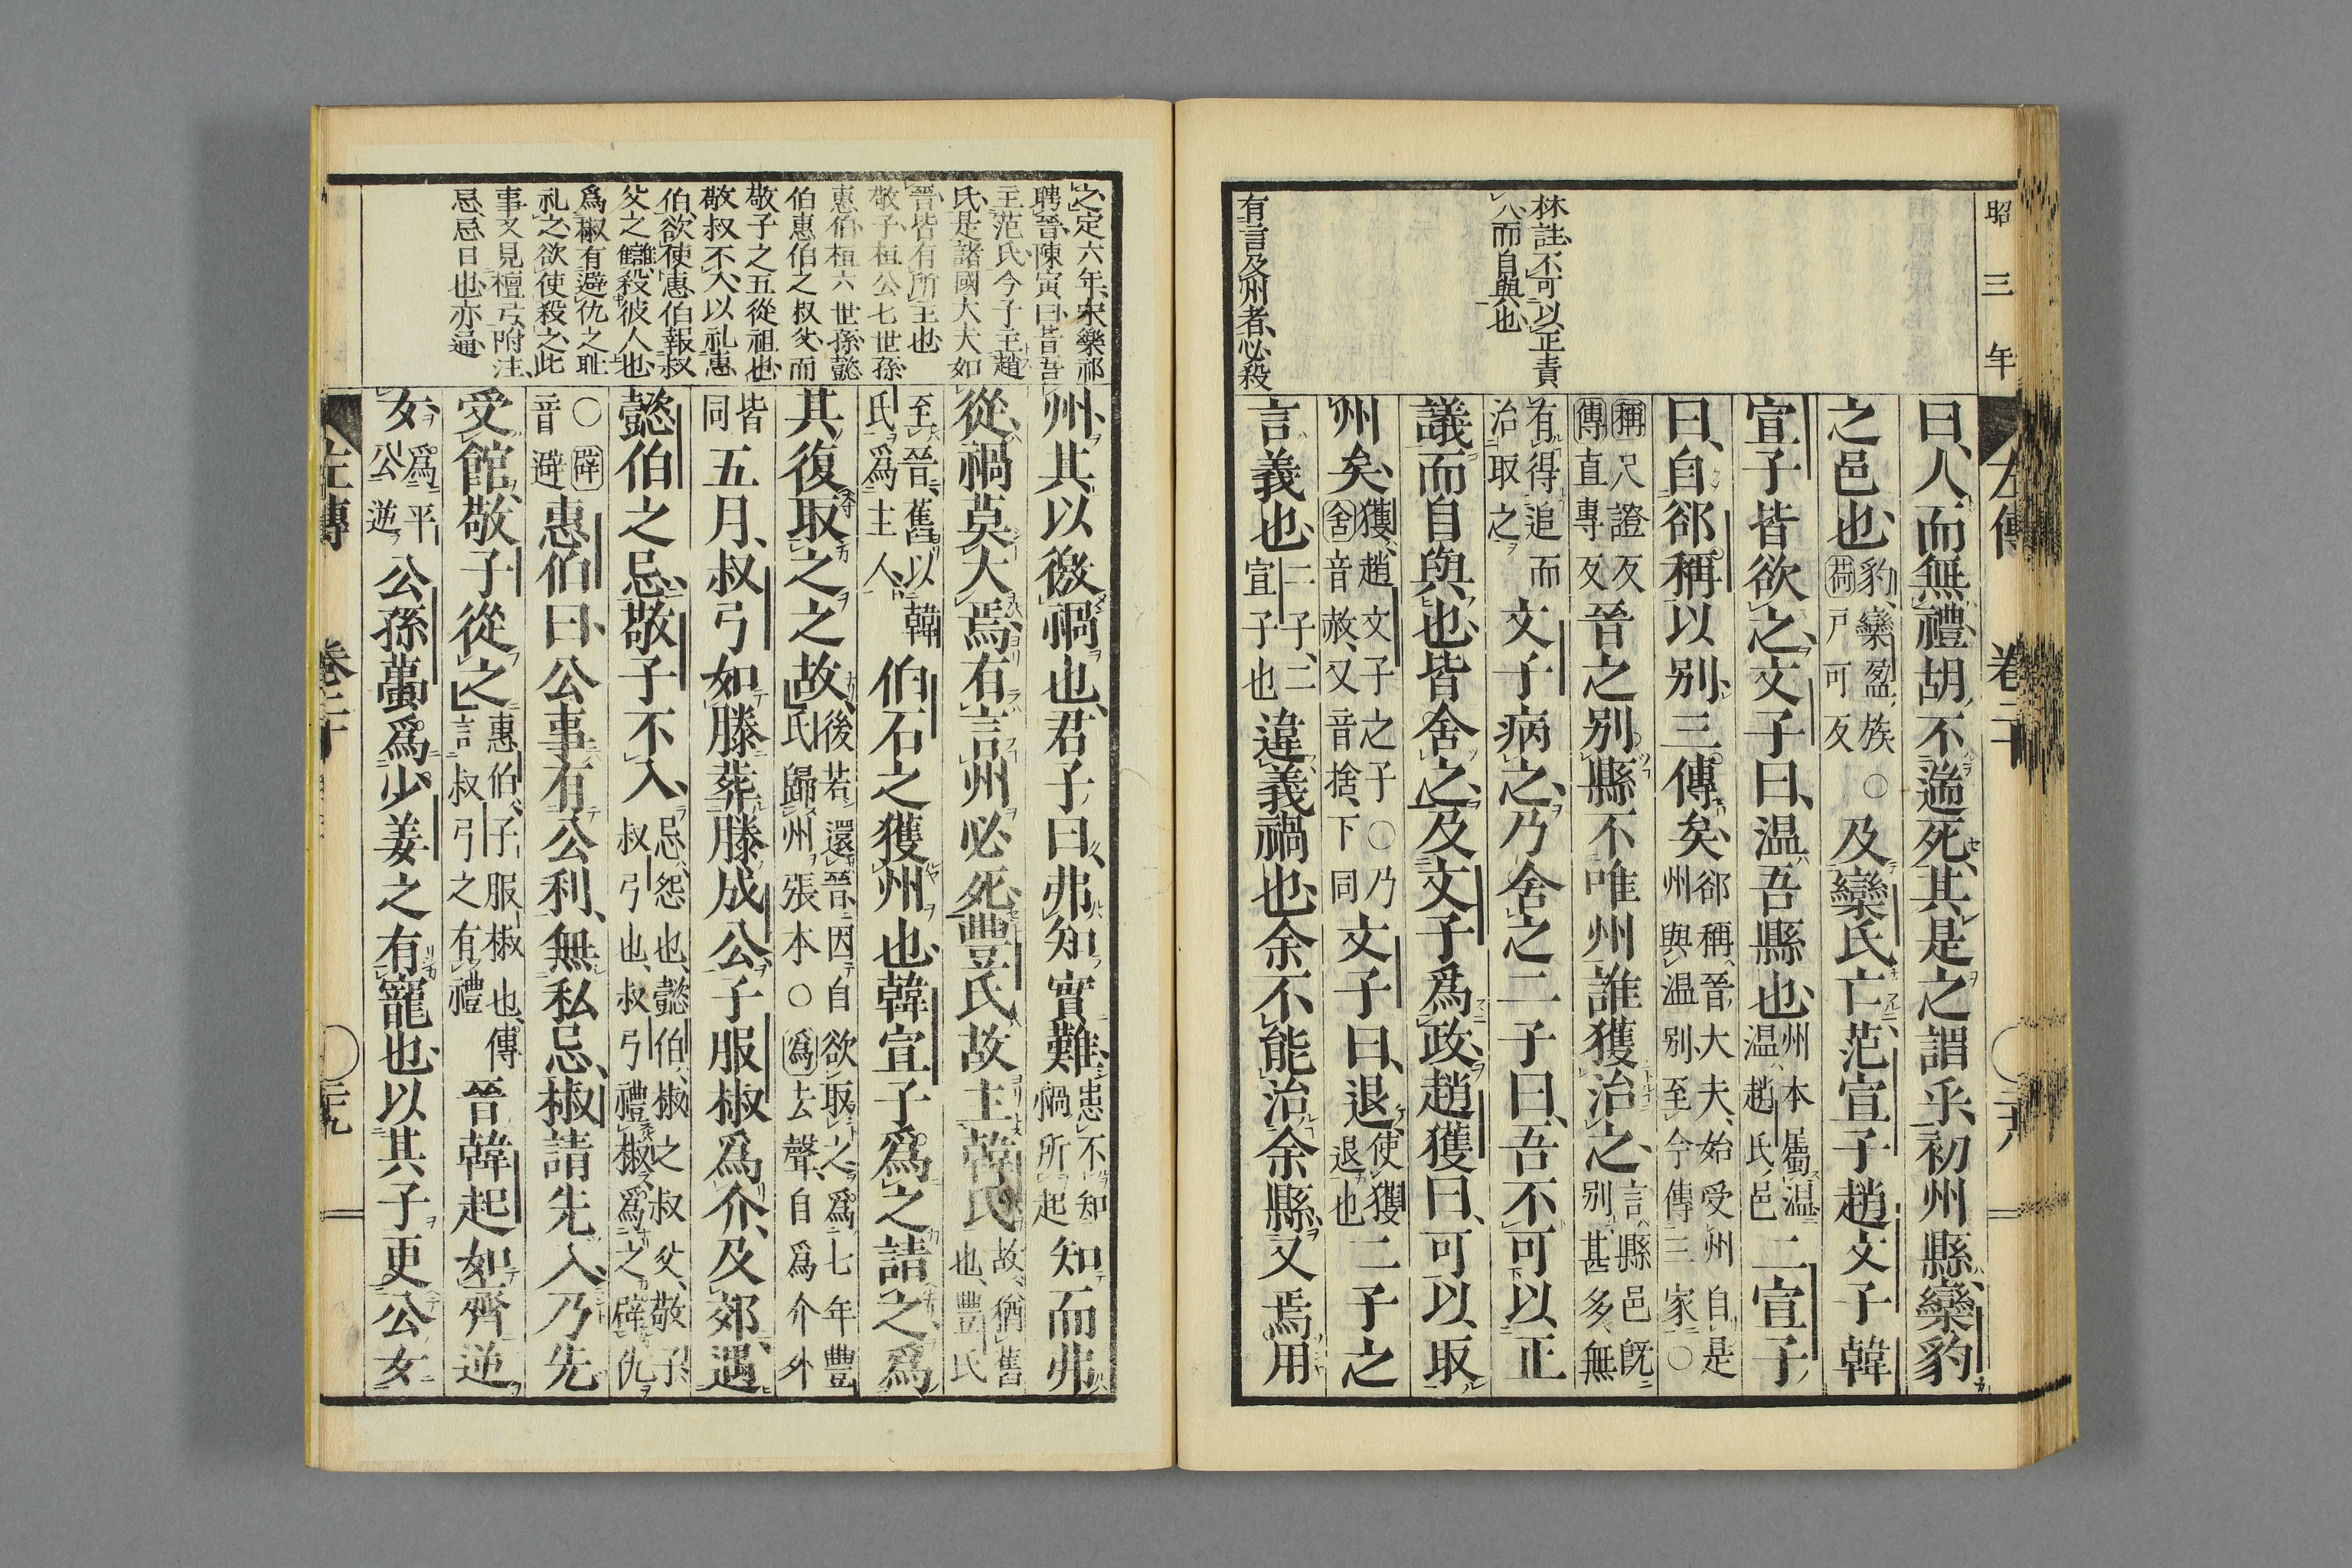 昭三年
左傳 卷二十 二十八
林註不可以正責
人而自與也
有言及州者必殺
曰人而無禮胡不遄死其是之謂乎初州縣欒豹
之邑也豹欒盈族○荷戸可反及欒氏亡范宣子趙文子韓
宣子皆欲之文子曰温吾縣也州本屬温温趙氏邑二宣子
曰自郤稱以别三傳矣郤稱晉大夫始受州自是州與温别至今傳三家○
稱尺證反傳直專反晉之别縣不唯州誰獲治之言縣邑既别甚多無
有得追而治取之文子病之乃舍之二子曰吾不可以正
議而自與也皆舍之及文子爲政趙獲曰可以取
州矣獲趙文子之子○乃舍音赦又音捨下同文子曰退使獲退也二子之
言義也二子二宣子也違義禍也余不能治余縣又焉用
之定六年宋樂祁
聘晉陳寅曰昔吾
主范氏今子主趙
氏是諸國大夫如
晉皆有所主也
敬子桓公七世孫
惠伯桓六世孫懿
伯惠伯之叔父而
敬子之五從祖也
敬叔不入以礼惠
伯欲使惠伯報叔
父之讎殺彼人也
爲椒有避仇之耻
礼之欲使殺之此
事又見檀弓附注
忌忌日也亦通
州其以徼禍也君子曰弗知實難患不知禍所起知而弗
從禍莫大焉有言州必死豐氏故主韓氏故猶舊也豐氏
至晉舊以韓氏爲主人伯石之獲州也韓宣子爲之請之爲
其復取之之故後若還晉因自欲取之爲七年豐氏歸州張本○爲去聲自爲介外
皆同五月叔弓如滕葬滕成公子服椒爲介及郊遇
懿伯之忌敬子不入忌怨也懿伯椒之叔父敬子叔弓也叔弓禮椒爲之辟仇
○辟音避惠伯曰公事有公利無私忌椒請先入乃先
受館敬子從之惠伯子服椒也傳言叔弓之有禮晉韓起如齊逆
女爲平公逆公孫蠆爲少姜之有寵也以其子更公女
左傳 卷二十 二十九